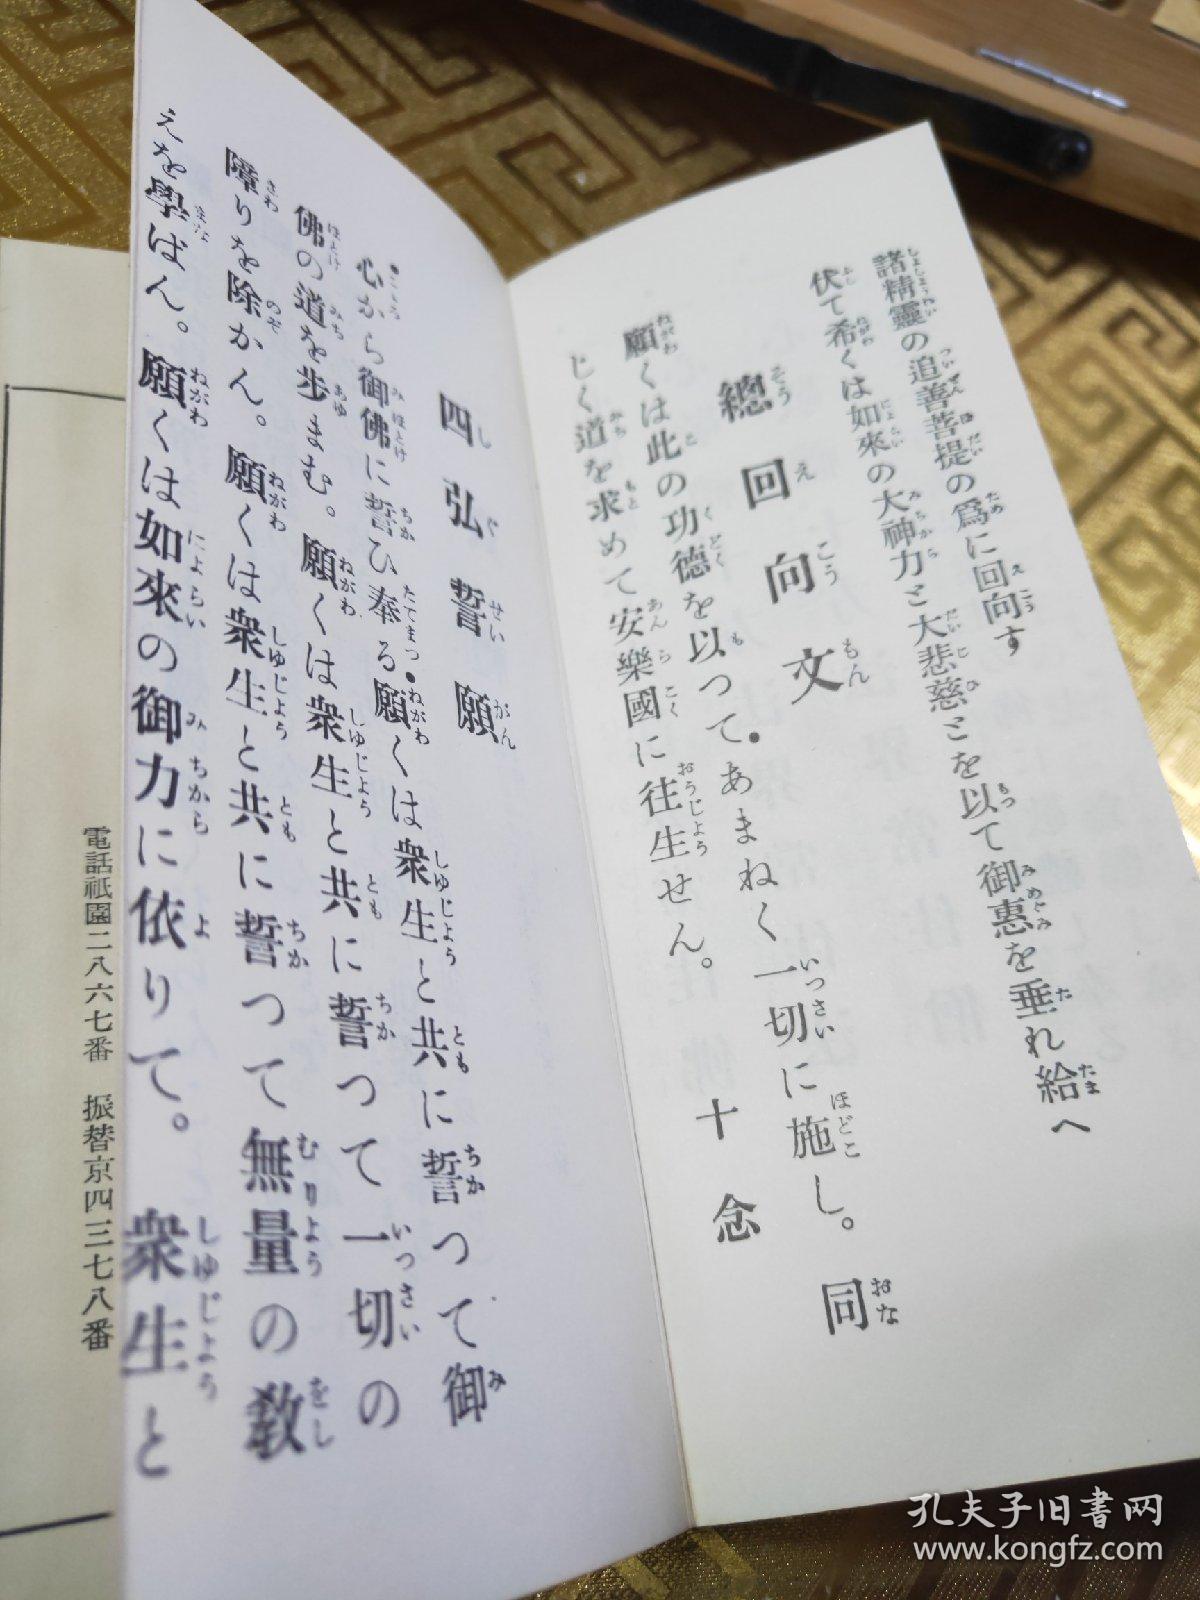 諸精靈の追善菩提の爲に回向す
伏て希くは如來の大神力と大悲慈とを以て御惠を垂れ給へ
總回向文
願くは此の功德を以つて・あまねく一切に施し。同
じく道を求めて安樂國に往生せん。
十念
四弘誓願
・心から御佛に誓ひ奉る・願くは衆生と共に誓つて御
佛の道を歩まむ。願くは衆生と共に誓つて一切の
障りを除かん。願くは衆生と共に誓つて無量の敎
えを學ばん。願くは如來の御力に依りて。衆生と
電話祇園二八六七番 振替京四三七八番
孔夫子旧书网
www.kongfz.com